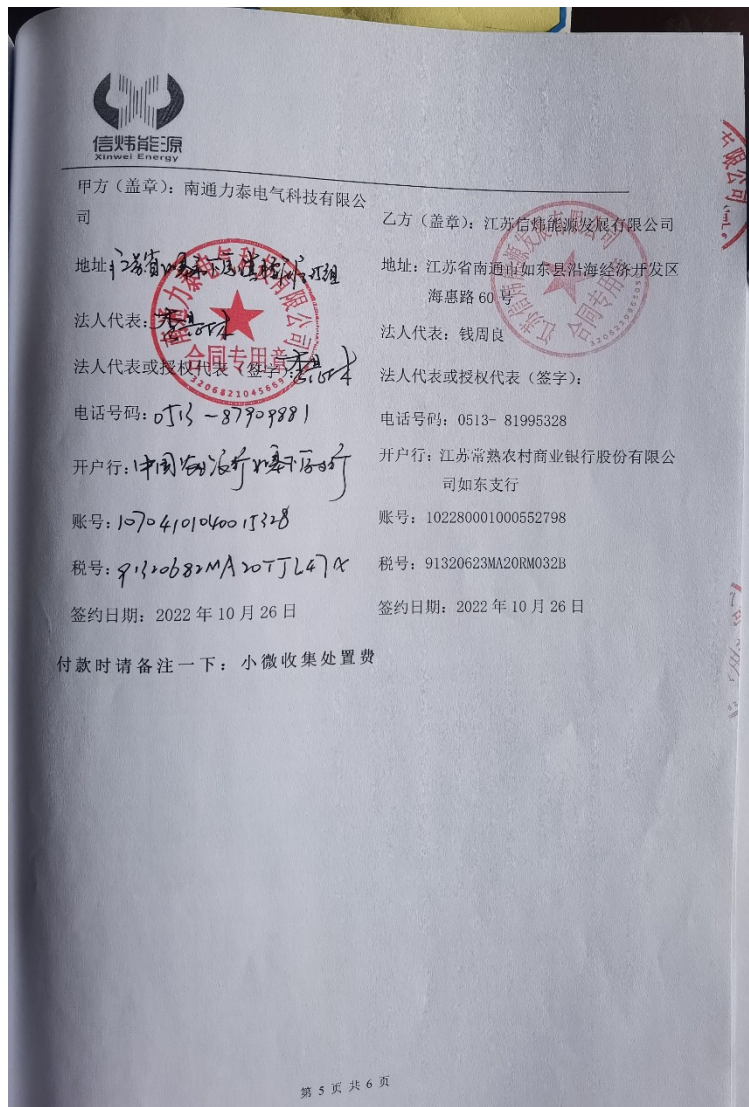 信炜能源
Xinwei Energy
甲方（盖章）：南通力泰电气科技有限公
司
地址：江苏省
法人代表：
法人代表或授权代表（签字）：
电话号码：0513-87909881
开户行：中国农业银行
账号：10704101040015328
税号：91320682MA20TJL47X
签约日期：2022 年 10 月 26 日
乙方（盖章）：江苏信炜能源发展有限公司
地址：江苏省南通市如东县沿海经济开发区
海惠路 60 号
法人代表：钱周良
法人代表或授权代表（签字）：
电话号码：0513- 81995328
开户行：江苏常熟农村商业银行股份有限公
司如东支行
账号：102280001000552798
税号：91320623MA20RM032B
签约日期：2022 年 10 月 26 日
付款时请备注一下：小微收集处置费
南通力泰电气科技有限公司
合同专用章
3206821045669
江苏信炜能源发展有限公司
合同专用章
有限公司
第 5 页 共 6 页